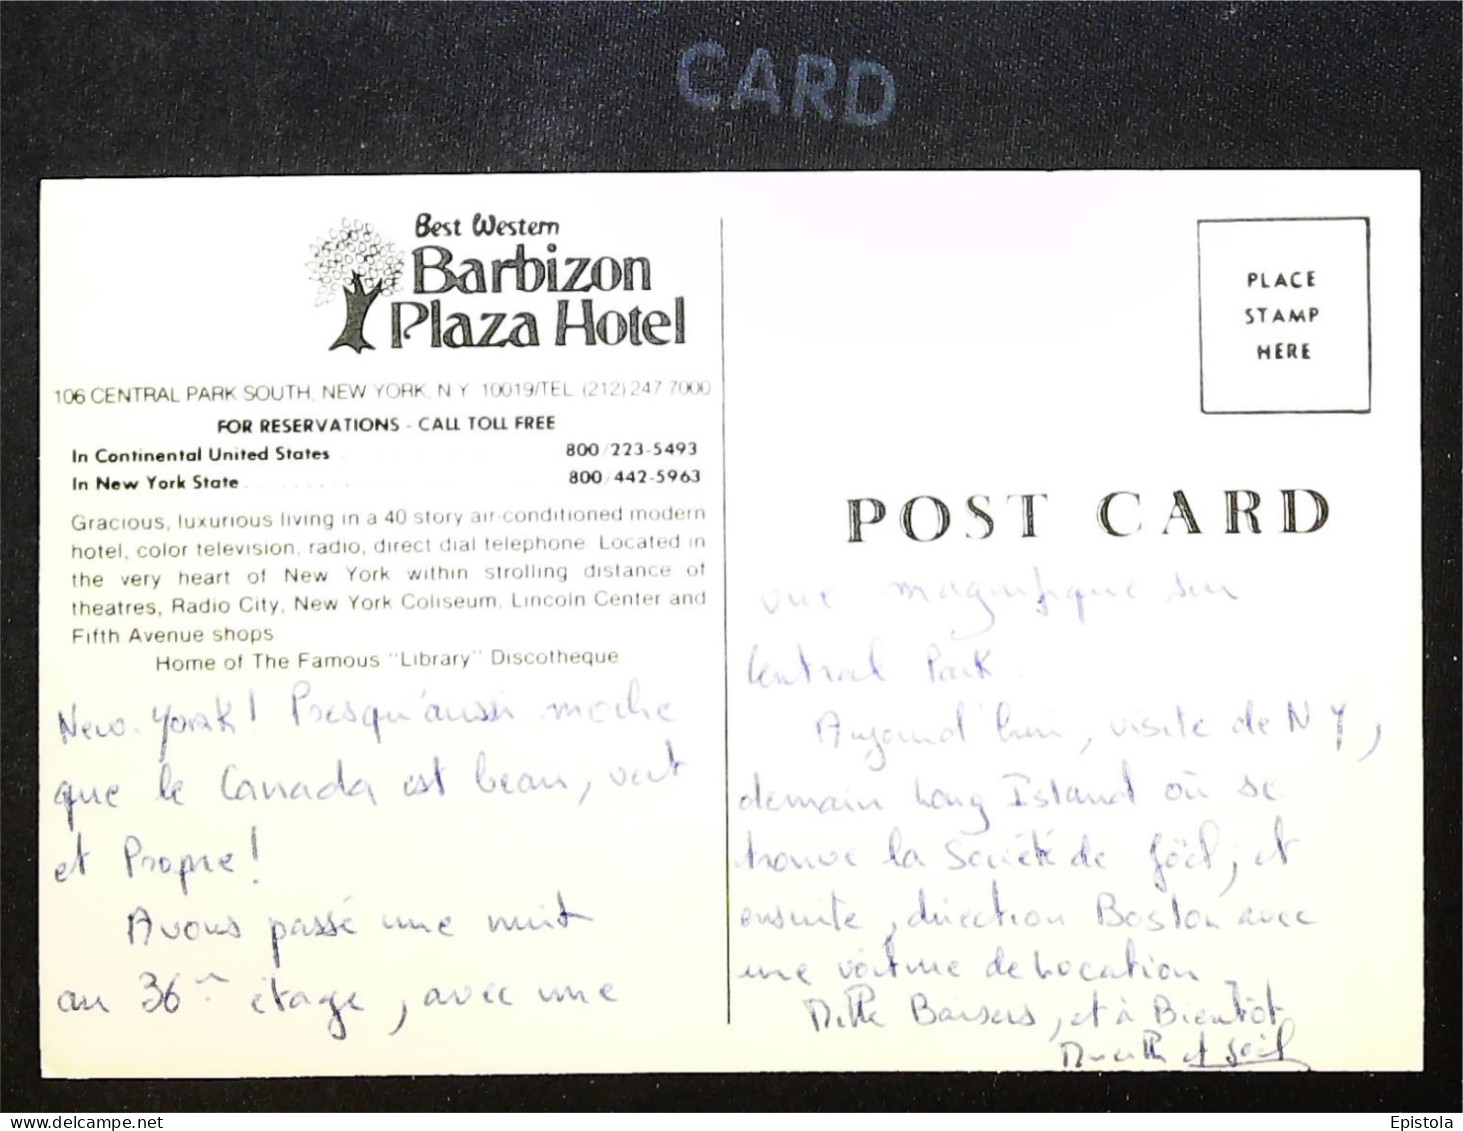 CARD
Best Western
Barbizon
Plaza Hotel
106 CENTRAL PARK SOUTH, NEW YORK, N Y 10019/TEL (212) 247 7000
FOR RESERVATIONS - CALL TOLL FREE
In Continental United States 800/223-5493
In New York State 800/442-5963
Gracious, luxurious living in a 40 story air-conditioned modern
hotel, color television, radio, direct dial telephone. Located in
the very heart of New York within strolling distance of
theatres, Radio City, New York Coliseum, Lincoln Center and
Fifth Avenue shops.
Home of The Famous "Library" Discotheque
New-York! Presqu'aussi moche
que le Canada est beau, vert
et Propre!
Avons passé une nuit
au 36ᵐ étage, avec une
PLACE
STAMP
HERE
POST CARD
vue magnifique sur
Central Park.
Aujourd'hui, visite de NY,
demain Long Island où se
trouve la Société de Joël, et
ensuite, direction Boston avec
une voiture de Location.
Mille Baisers, et à Bientôt
et Joël
Epistola